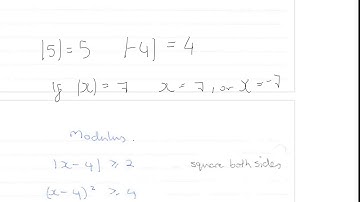 |5| = 5 |-4| = 4
If |x| = 7 x = 7, or x = -7
Modulus.
|x-4| ≥ 2 square both sides
(x-4)² ≥ 4